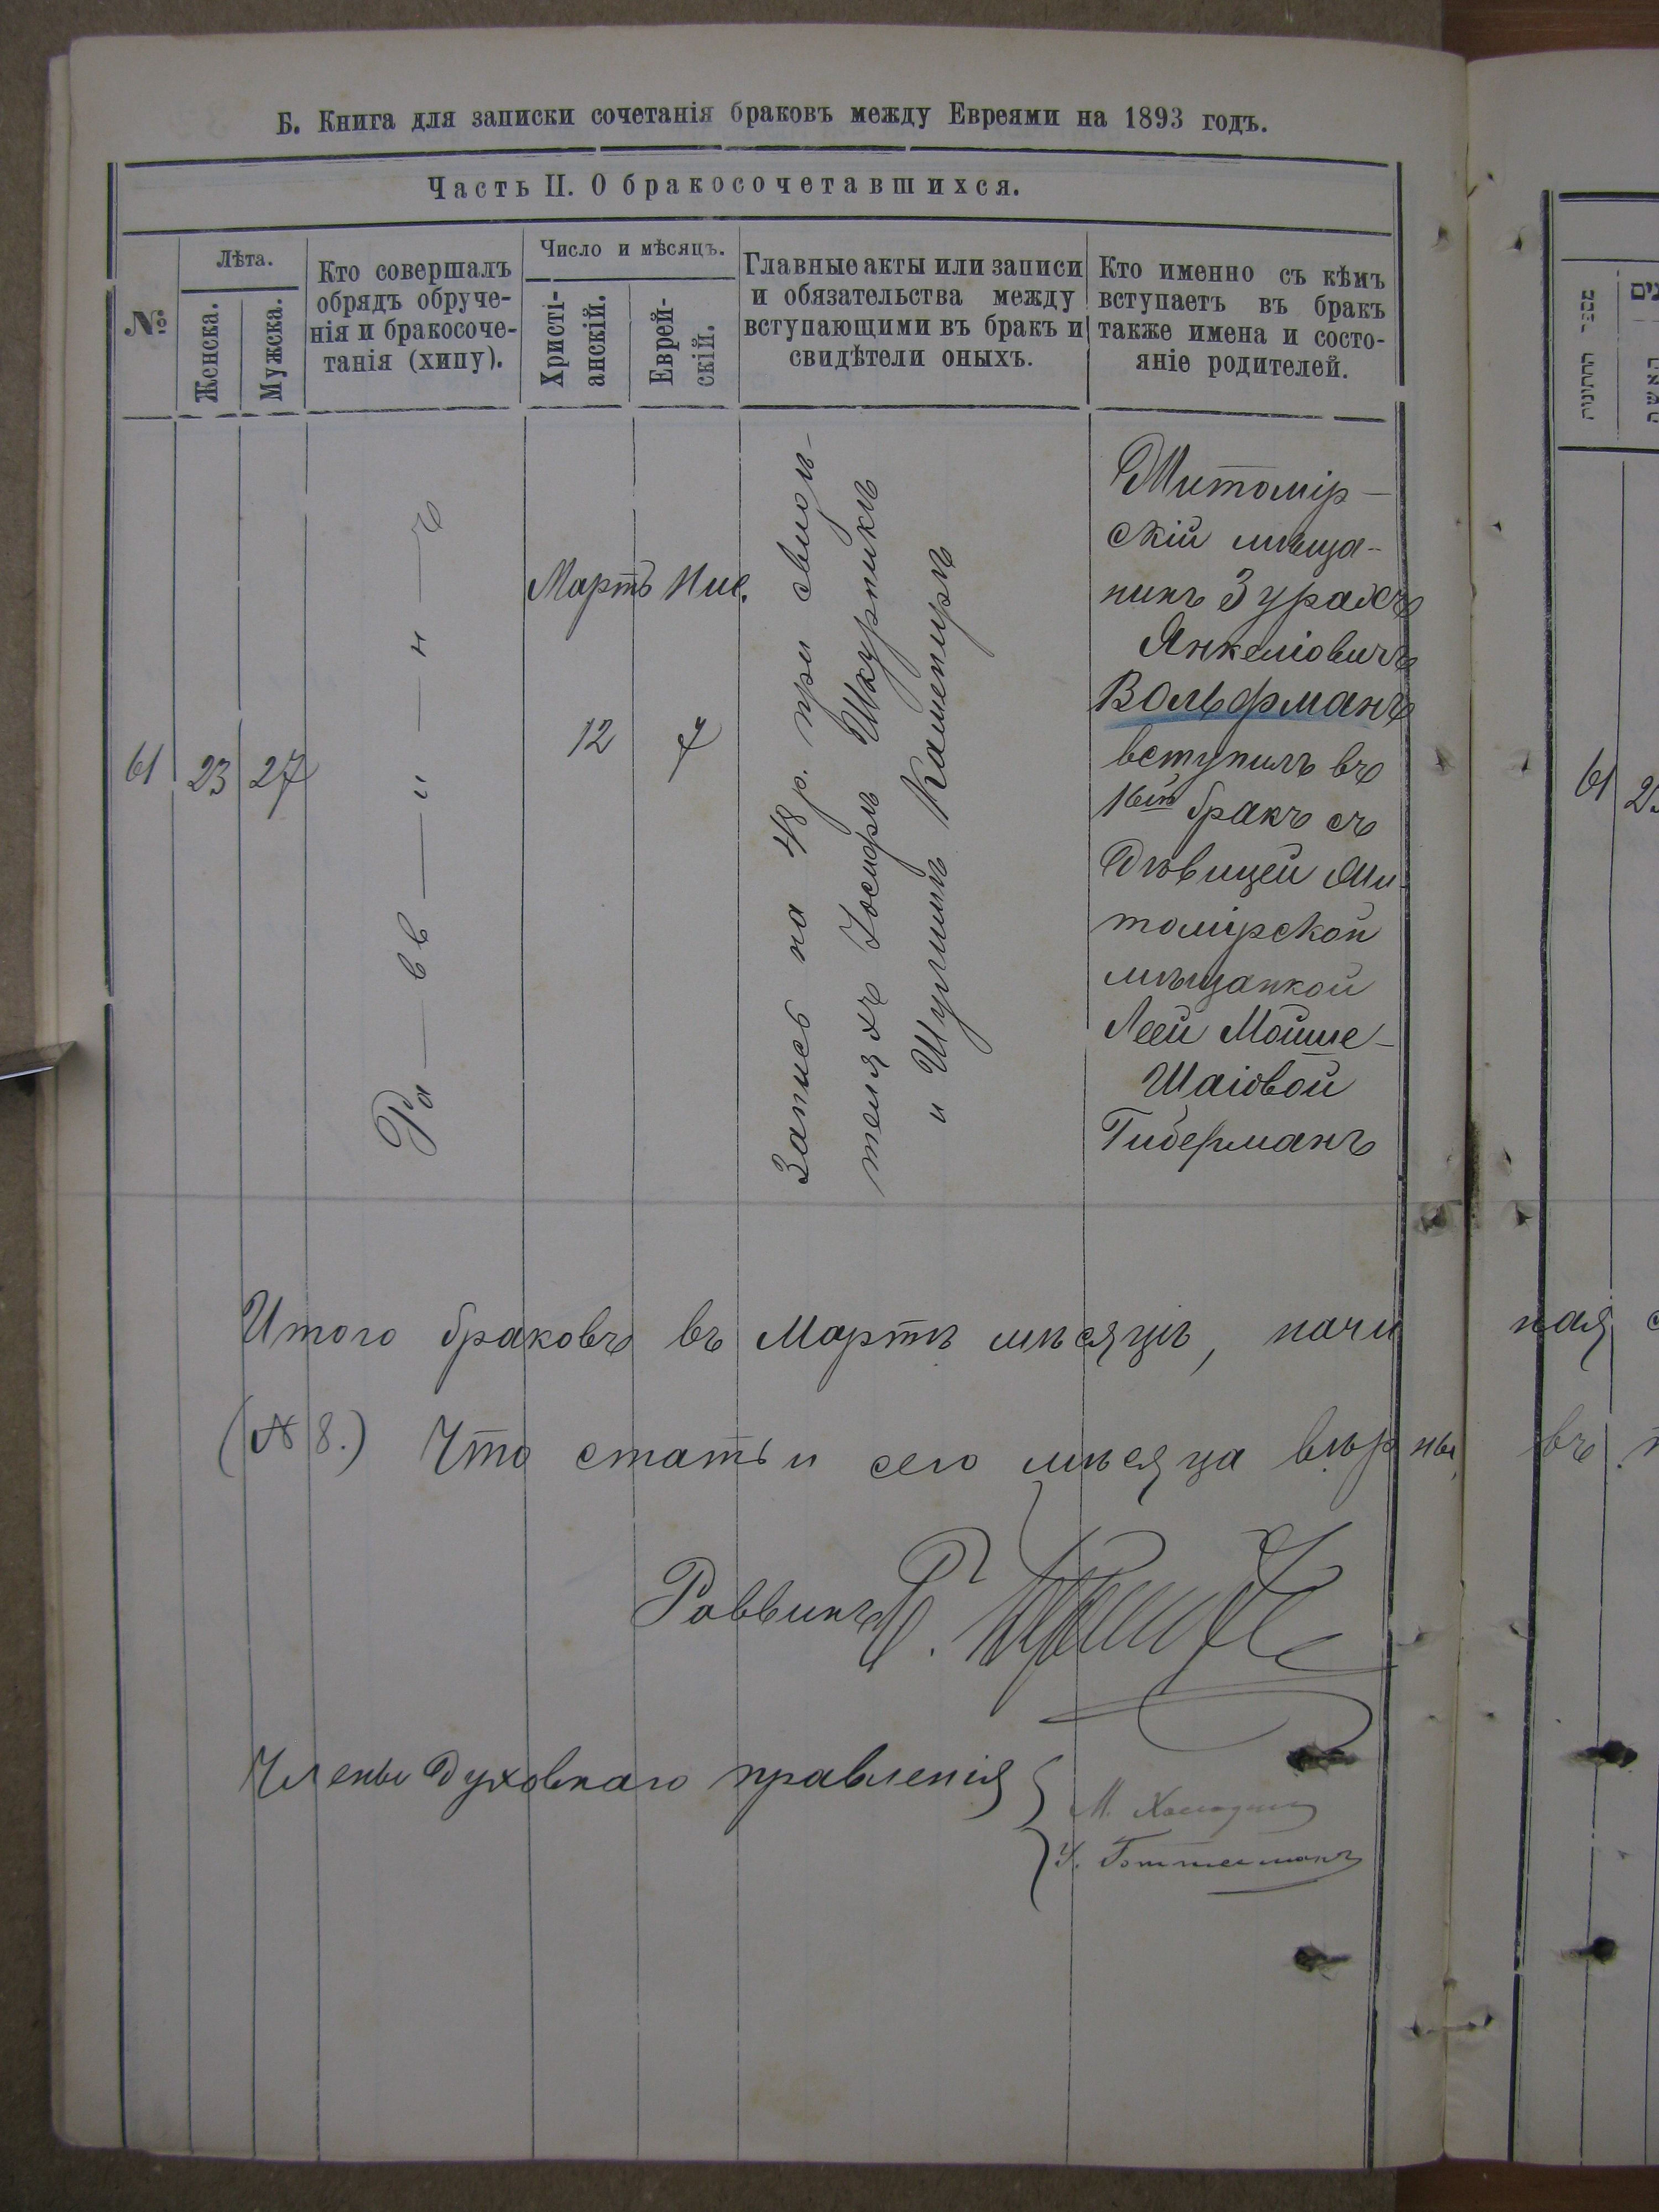 Б. Книга для записки сочетанія браковъ между Евреями на 1893 годъ.
Часть II. О бракосочетавшихся.
№
Лѣта.
Женска.
Мужска.
Кто совершалъ
обрядъ обруче-
нія и бракосоче-
танія (хипу).
Число и мѣсяцъ.
Христі-
анскій.
Еврей-
скій.
Главные акты или записи
и обязательства между
вступающими въ бракъ и
свидѣтели оныхъ.
Кто именно съ кѣмъ
вступаетъ въ бракъ
также имена и состо-
яніе родителей.
61
23
27
Ра — вв — и — н — ъ
Мартъ
12
Нис.
7
Запись на 48 р. при свидѣ-
теляхъ Іосифѣ Шкурникѣ
и Шулимѣ Кашепирѣ
Житомір-
скій мѣща-
нинъ Зурахъ
Янкеліовичъ
Вольфманъ
вступилъ въ
1ый бракъ съ
дѣвицей Жи-
томірской
мѣщанкой
Леей Мойше-
Шаіовой
Гидерманъ
Итого браковъ въ Мартѣ мѣсяцѣ, начи ная с
(№ 8.) Что статьи сего мѣсяца вѣрны въ
Раввинъ
Члены Духовнаго правленія
מספר החתונות
האשה
61